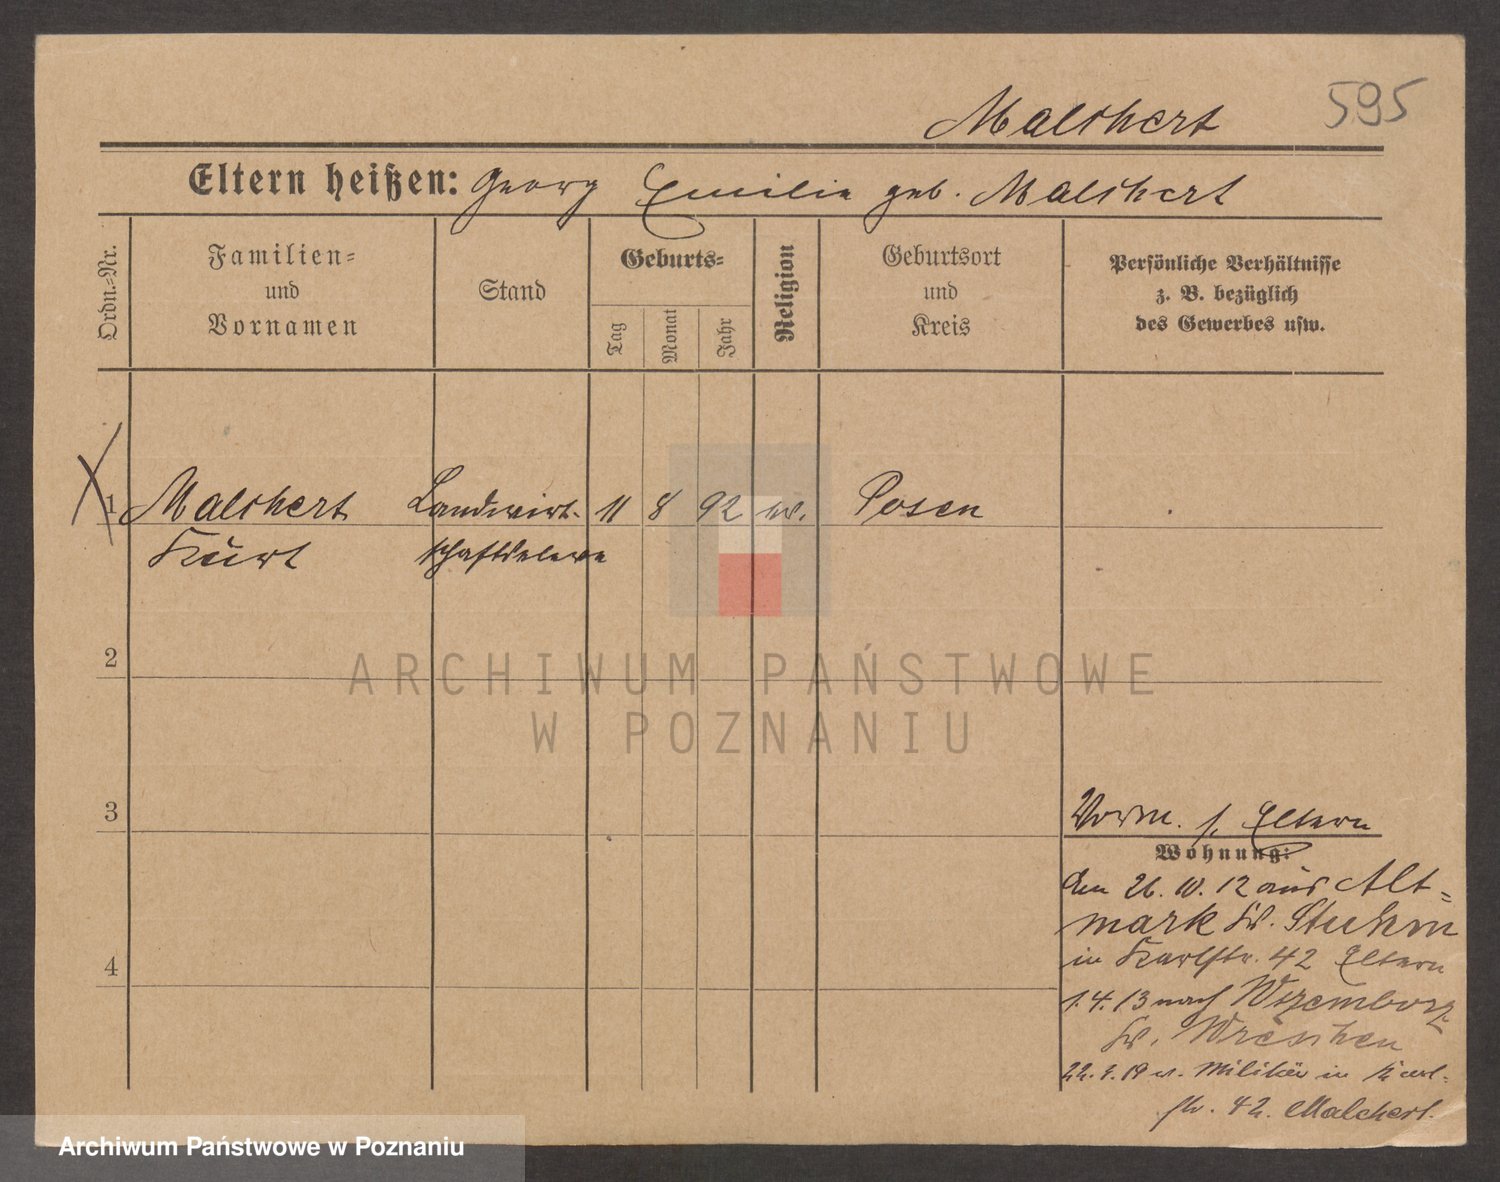 595
Malchert
Eltern heißen: Georg Emilie geb. Malchert
Ordn.-Nr.
Familien-
und
Vornamen
Stand
Geburts-
Tag
Monat
Jahr
Religion
Geburtsort
und
Kreis
Persönliche Verhältnisse
z. B. bezüglich
des Gewerbes usw.
1 Malchert Landwirt- 11 8 92 ev. Posen
Kurt schaftseleve
2
3
4
Vorm. s. Eltern
Wohnung:
den 26. 10. 12 aus Alt-
mark Kr. Stuhm
in Karlstr. 42 Eltern
1. 4. 13 nach
Kr. Wreschen
19 v. Militär in Karl-
str. 42. Malchert.
ARCHIWUM PAŃSTWOWE
W POZNANIU
Archiwum Państwowe w Poznaniu